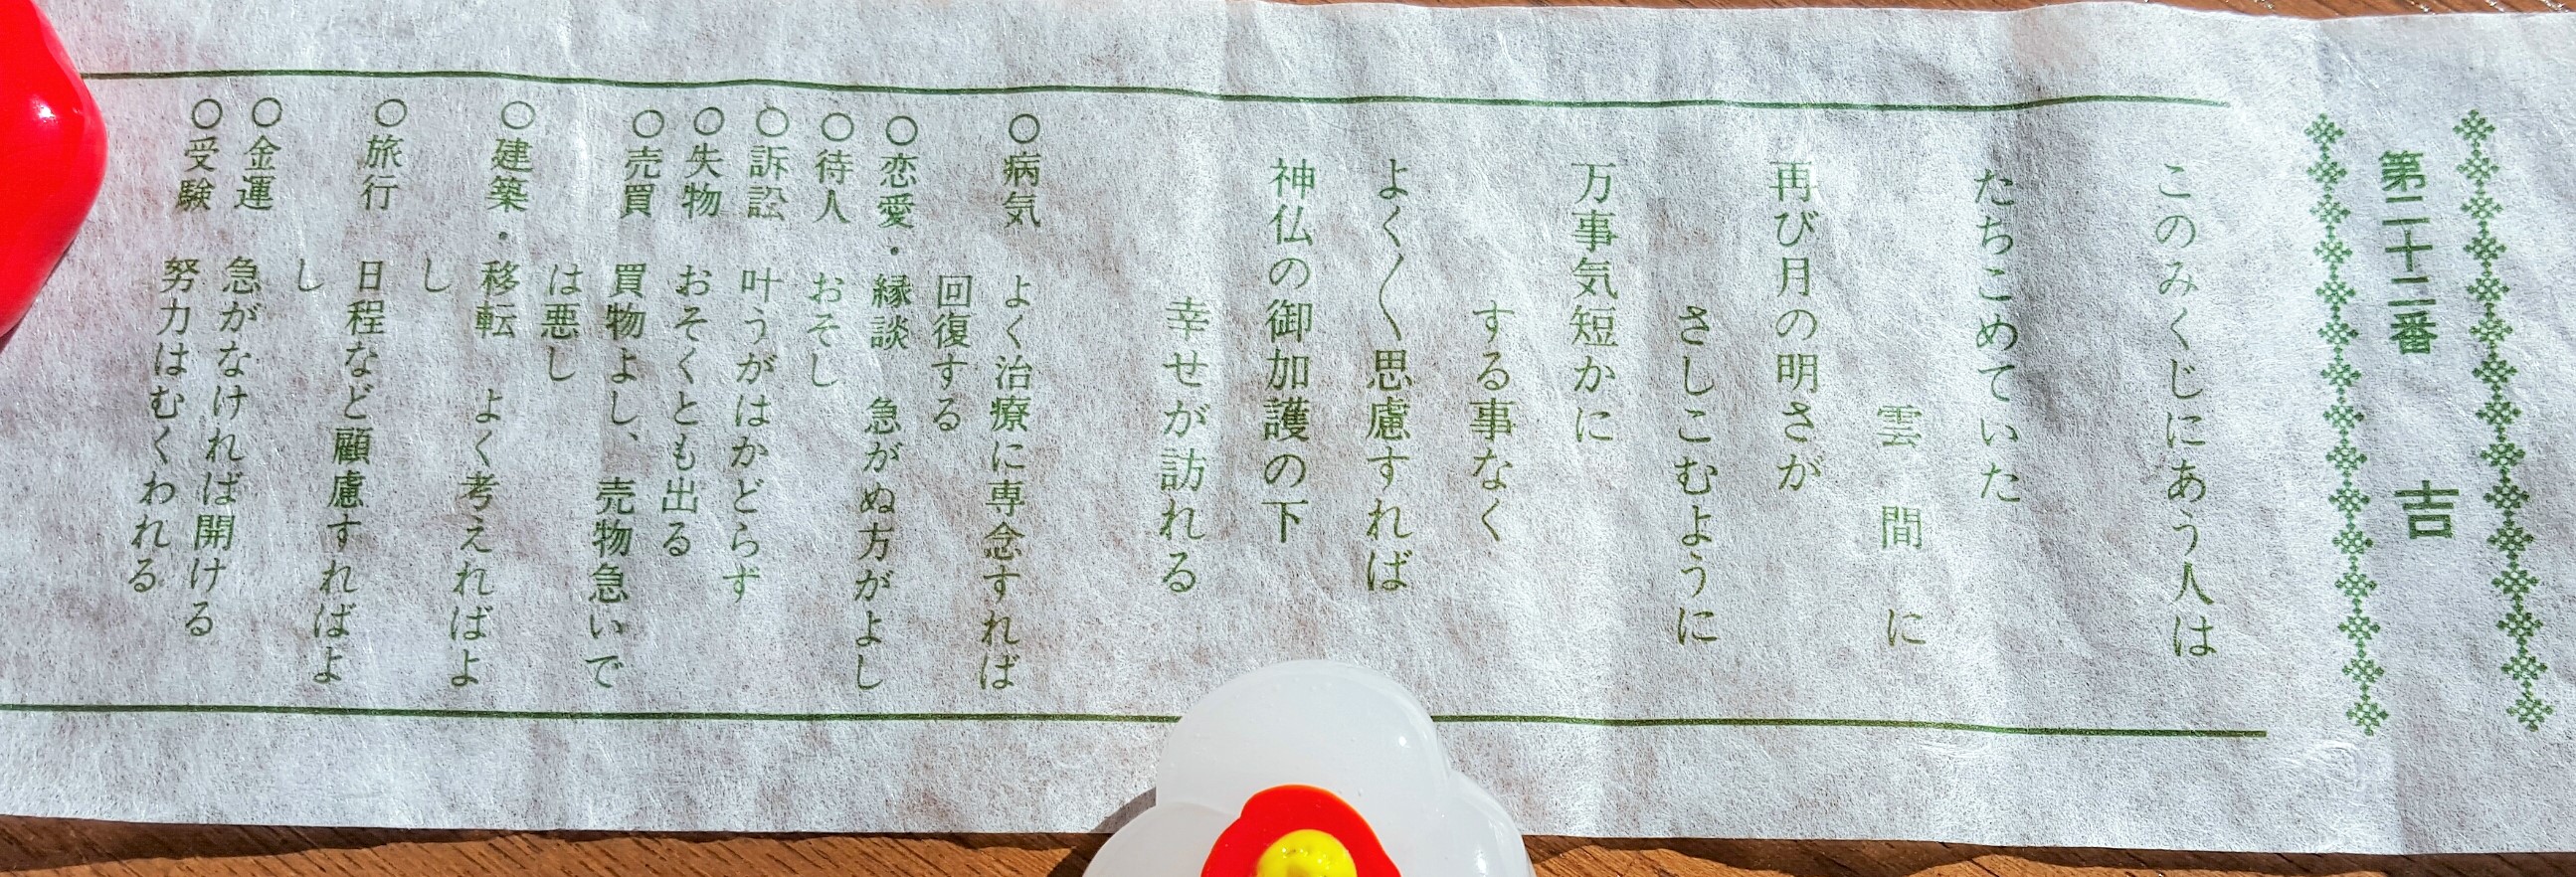 第二十二番 吉
このみくじにあう人は
たちこめていた
雲間に
再び月の明さが
さしこむように
万事気短かに
する事なく
よく〱思慮すれば
神仏の御加護の下
幸せが訪れる
○病気 よく治療に専念すれば
回復する
○恋愛・縁談 急がぬ方がよし
○待人 おそし
○訴訟 叶うがはかどらず
○失物 おそくとも出る
○売買 買物よし、売物急いで
は悪し
○建築・移転 よく考えればよ
し
○旅行 日程など顧慮すればよ
し
○金運 急がなければ開ける
○受験 努力はむくわれる